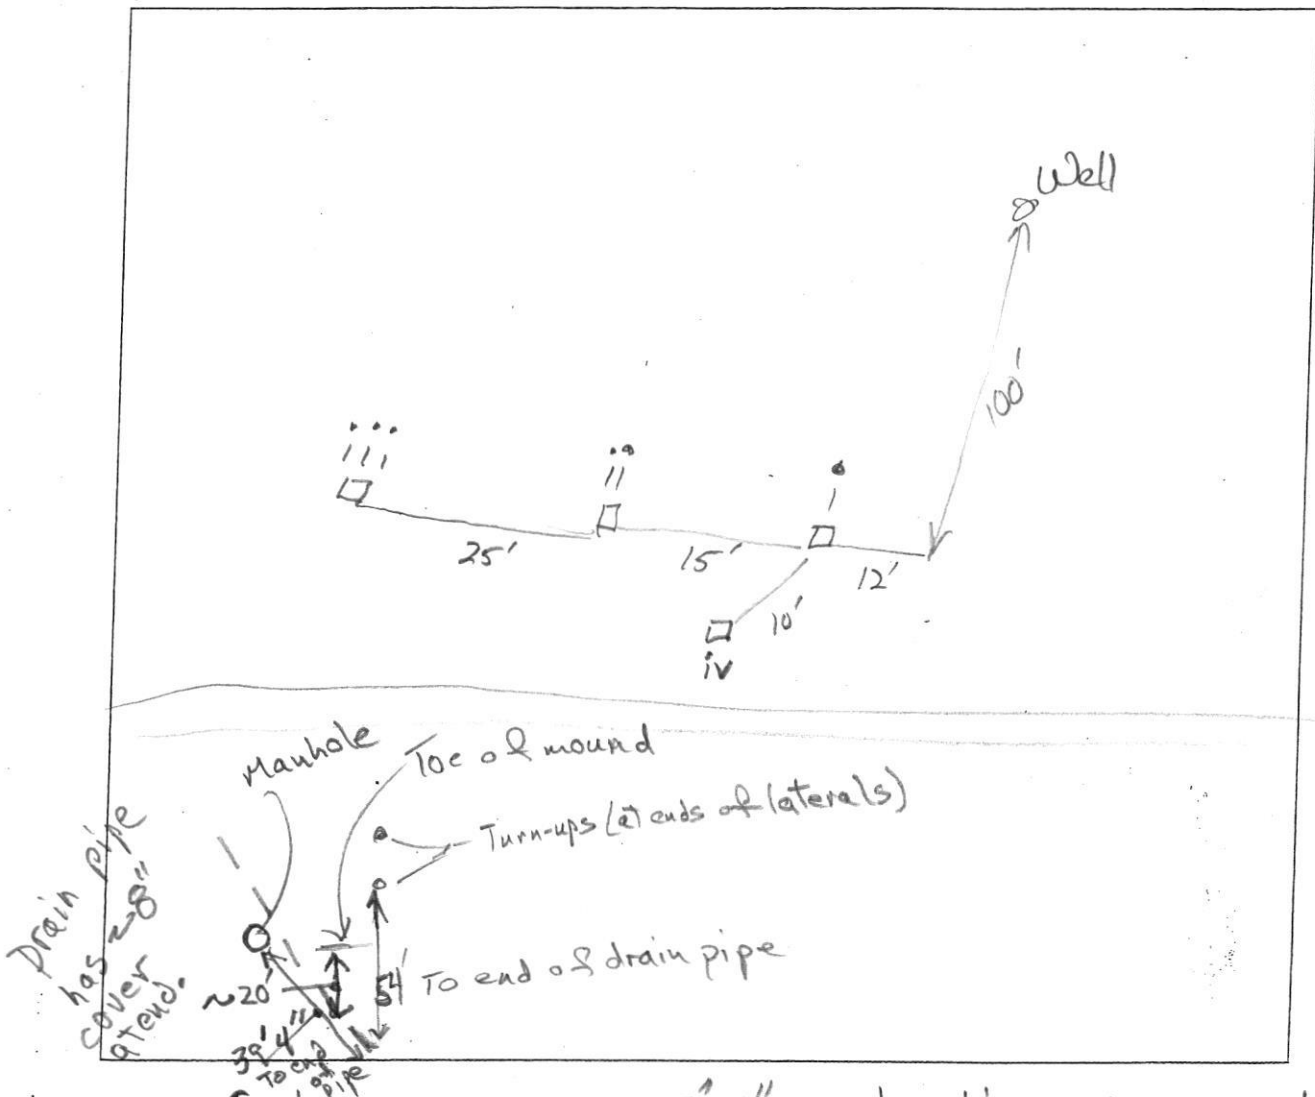 Well
100'
... .. .
III II I
25' 15' 12'
10'
iv
Manhole
Toe of mound
Turn-ups (at ends of laterals)
Drain pipe
has ~8"
cover
at end.
~20'
54' To end of drain pipe
39' 4"
To end
of
pipe